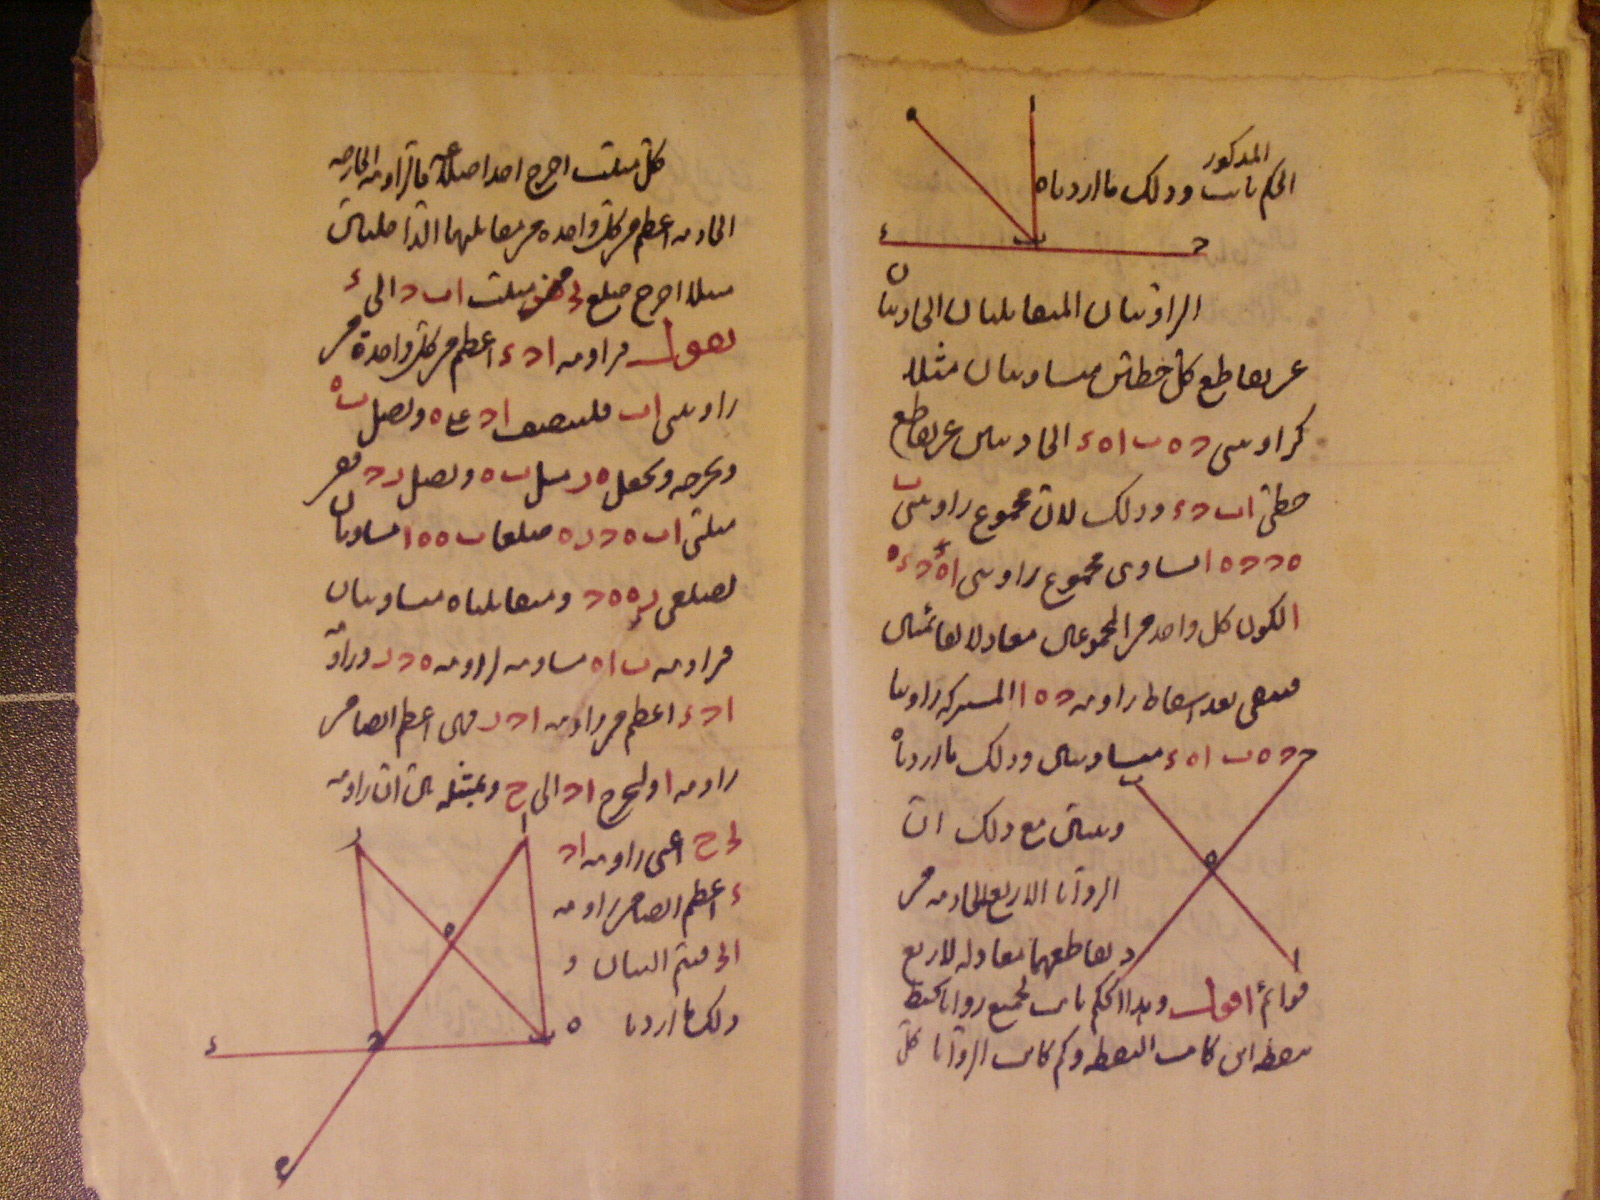 المذكور
الحكم ثابت وذلك ما اردناه
الزاويتان المتقابلتان الحادثتان
عن تقاطع كل خطين متساويتان مثلا
كزاويتى ح ه ب ا ه ء الحادثتين عن تقاطع
خطى ا ب ح ء وذلك لان مجموع زاويتى ب
ه ح ح ه ا يساوى مجموع زاويتى
لكون كل واحد من المجموعين معادلا لقائمتين
فيبقى بعد اسقاط زاوية ح ه ا المشتركة زاويتا
ح ه ب ا ه ء متساويتين وذلك ما اردناه
وتبين مع ذلك ان
الزوايا الاربع الحادثة من
تقاطعهما معادلة لاربع
قوائم اقول وهذا الحكم ثابت لجميع زوايا تحيط
بنقطة اين كانت النقطة وكم كانت الزوايا كل
كل مثلث اخرج احد اضلاعه فالزاوية الخارجة
الحادثة اعظم من كل واحدة من مقابلتيها الداخلتين
مثلا اخرج ضلع من مثلث ا ب ح الى ء
نقول فزاوية ا ح ء اعظم من كل واحدة من
زاويتى ا ب فلننصف ا ح على ه ونصل ب ه
ونخرجه ونجعل ه ر مثل ب ه ونصل ر ح ففى
مثلثى ا ب ه ح ر ه ضلعا ب ه ه ا مساويان
لضلعى ر ه ه ح ومتقابلتاه متساويتان
فزاوية ب ا ه مساوية لزاوية ه ح ر وزاوية
ا ح ء اعظم من زاوية ا ح ر فهى اعظم ايضا من
زاوية ا ولنخرج ا ح الى ح وبمثله بين ان زاوية
ب ح ح اعنى زاوية ا ح
ء اعظم ايضا من زاوية
ا ب ح فتم البيان و
ذلك ما اردنا ه